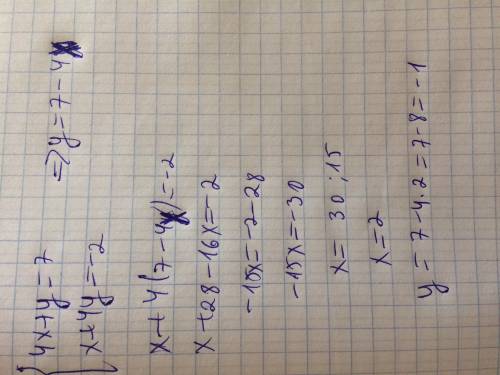 4x+y=7 => y=7-4x
x+4y=-2
x+4(7-4x)=-2
x+28-16x=-2
-15x=-2-28
-15x=-30
x= 30:15
x=2
y=7-4·2=7-8=-1